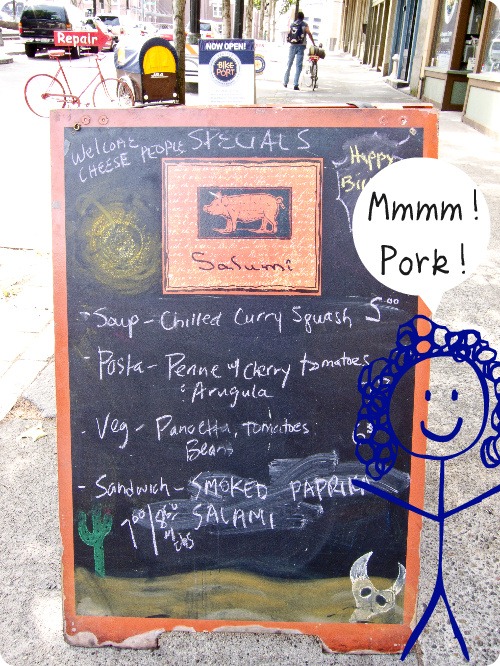 Repair
NOW OPEN!
BIKE
PORT
Welcome
CHEESE PEOPLE
SPECIALS
Happy
Mmmm!
Pork!
Salumi
- Soup - Chilled Curry Squash 5.00
- Pasta - Penne w/ Cherry tomatoes
Arugula
- Veg - Pancetta, tomatoes
Beans
- Sandwich - SMOKED PAPRIKA
SALAMI